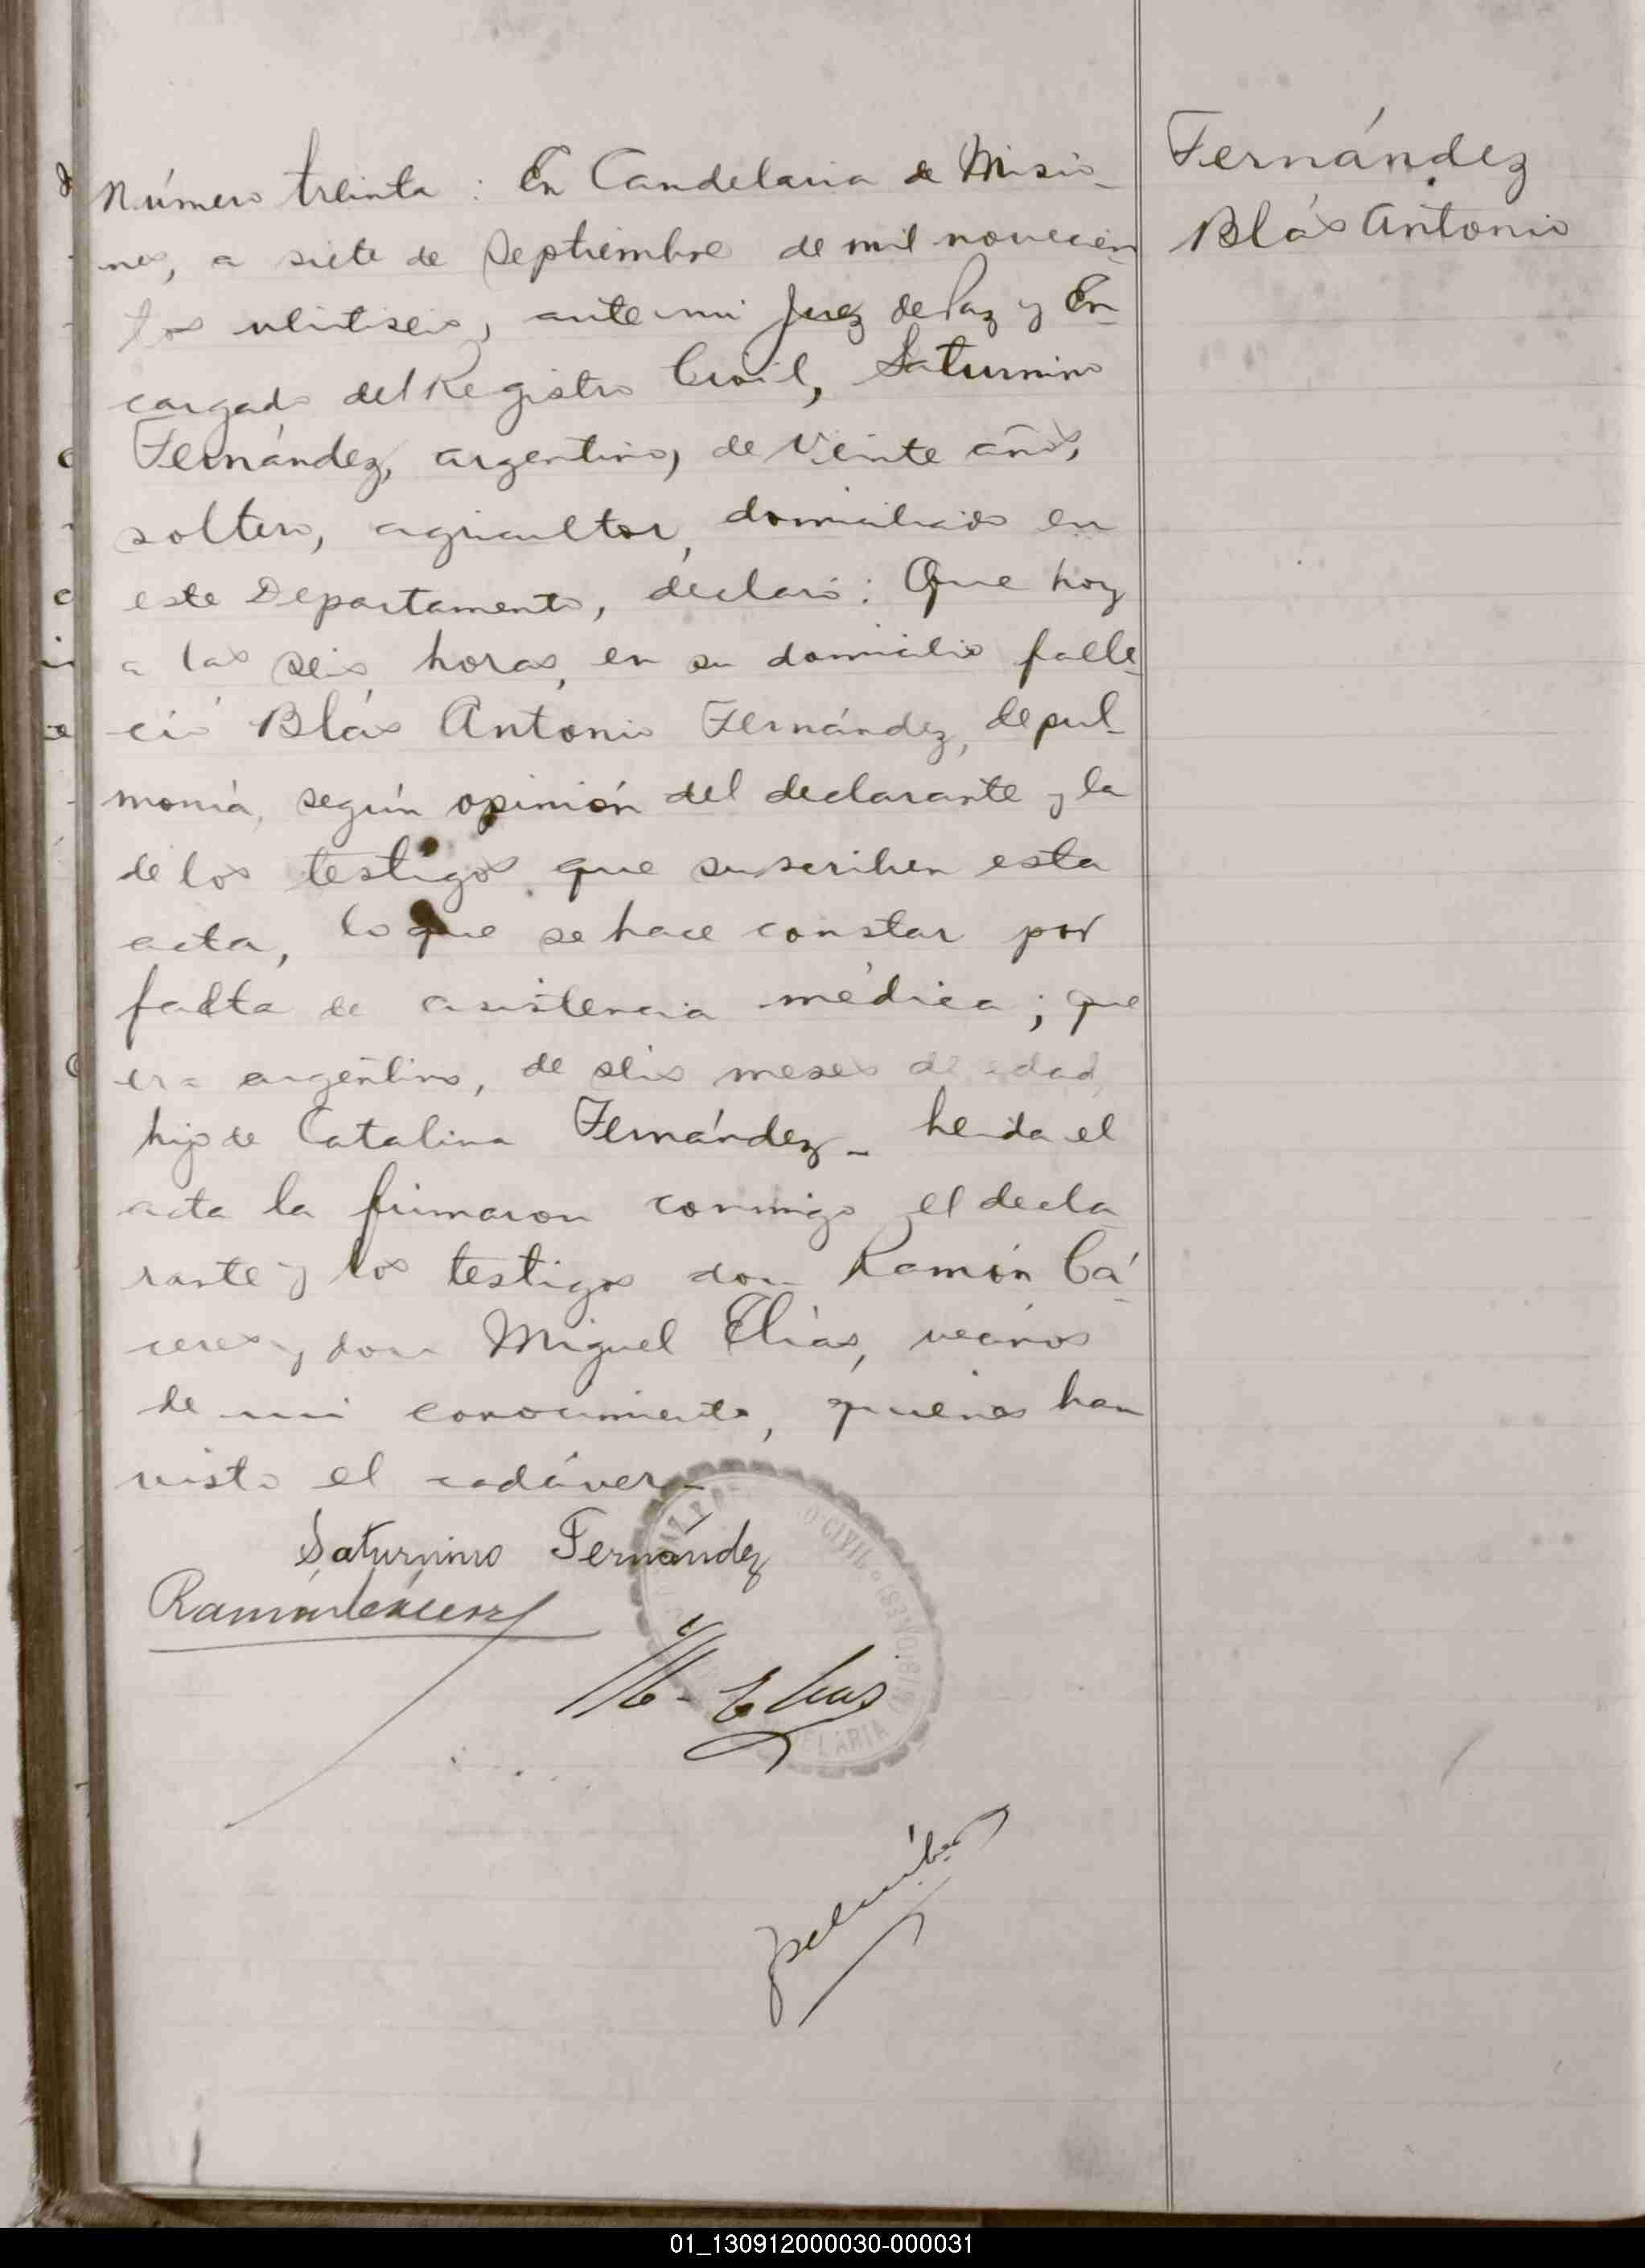 Fernández
Blás Antonio
Número treinta: En Candelaria de Misio-
nes, a siete de Septiembre de mil novecien
tos veintiseis, ante mi Juez de Paz y En-
cargado del Registro Civil, Saturnino
Fernández, argentino, de veinte años,
soltero, agricultor, domiciliado en
este Departamento, declaró: Que hoy
a las seis horas, en su domicilio falle
ció Blás Antonio Fernández, de pul-
monía, según opinión del declarante y la
de los testigos que suscriben esta
acta, lo que se hace constar por
falta de asistencia médica; que
era argentino, de seis meses de edad,
hijo de Catalina Fernández_ leida el
acta la firmaron conmigo el decla
rante y los testigos don Ramón Cá-
ceres y don Miguel Elías, vecinos
de mi conocimiento, quienes han
visto el cadáver_
Saturnino Fernández
Ramón Cáceres
M. Elias
CIVIL (MISIONES)
01_130912000030-000031